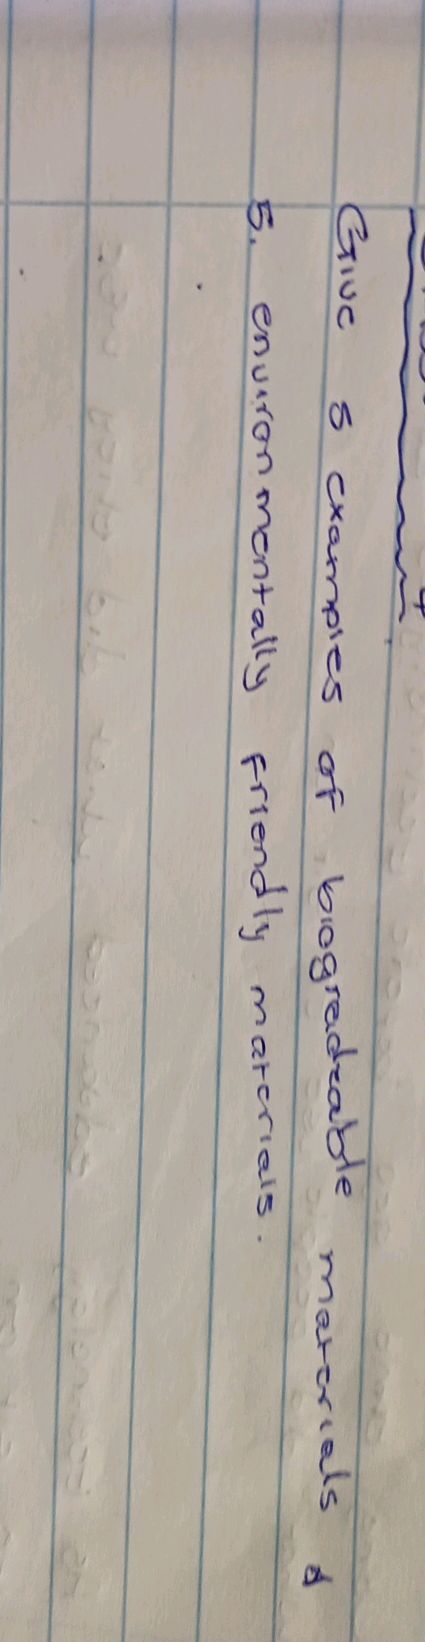 Give 5 examples of biogradeable materials &
5. environmentally friendly materials.